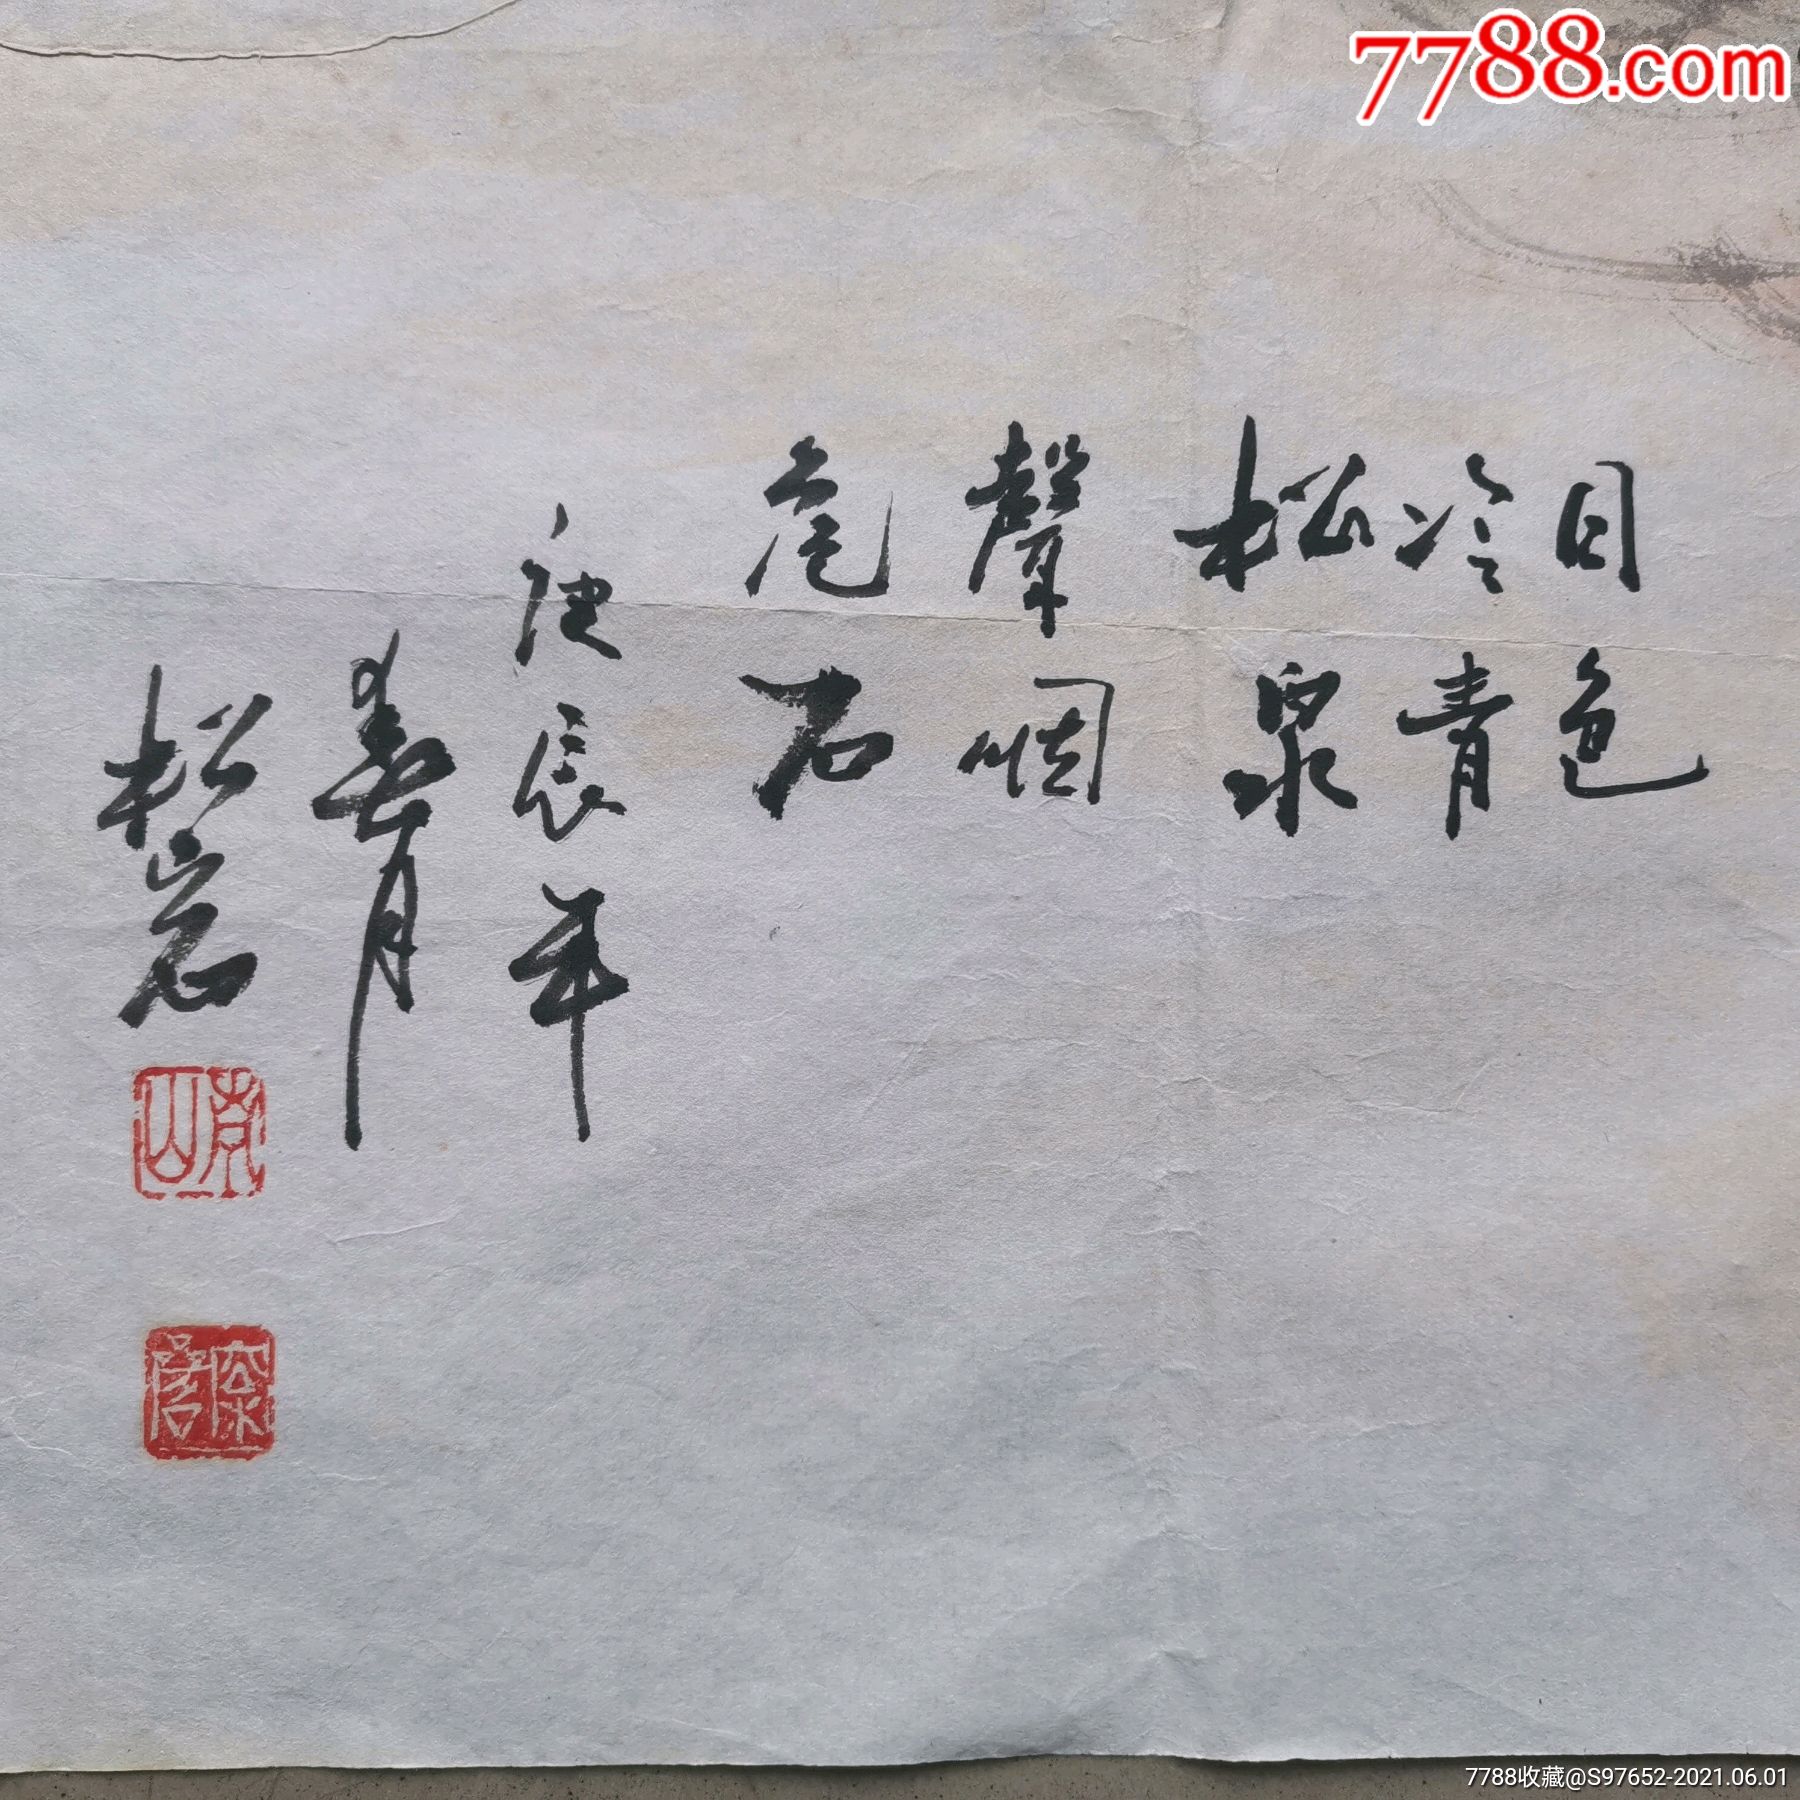 7788.com
日色
冷青
松泉
聲咽
危石
庚辰年
春月
松岩
7788收藏@S97652-2021.06.01